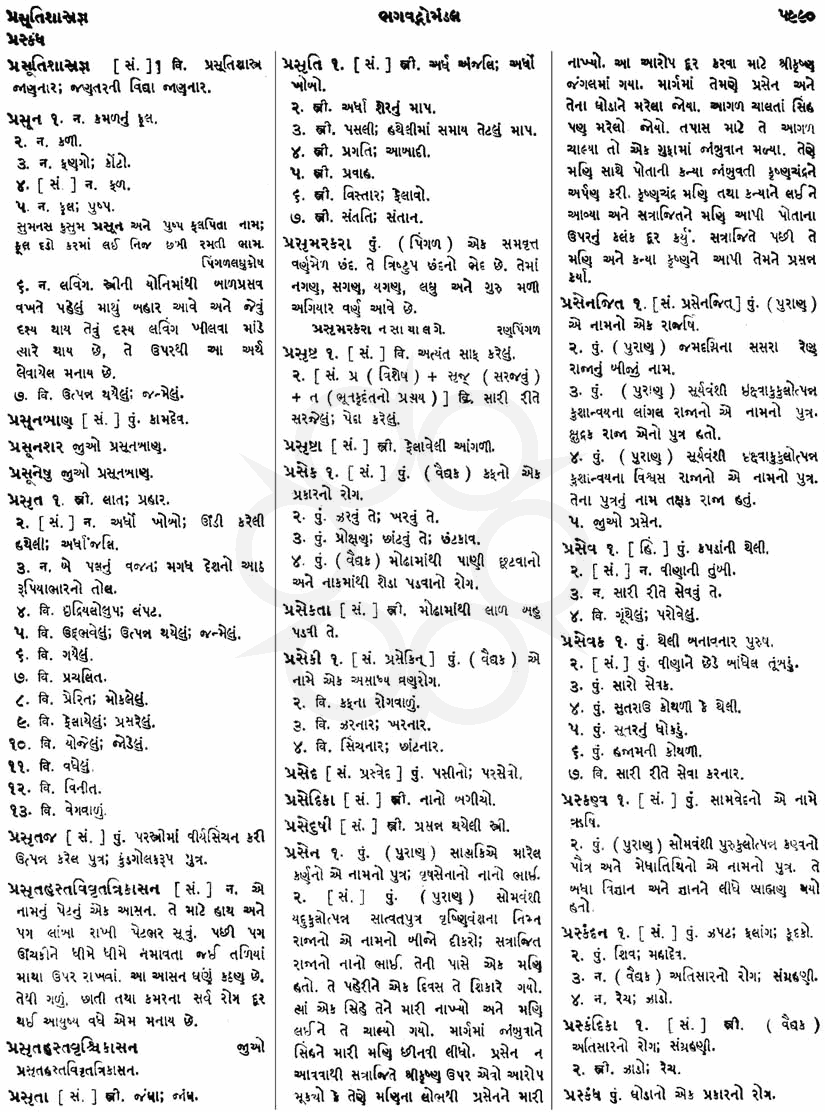 પ્રસૂતિશાસ્ત્રજ્ઞ
ભગવદ્ગોમંડલ
૫૯૯૦
પ્રસ્કંધ
પ્રસૂતિશાસ્ત્રજ્ઞ [ સં. ] ૧ વિ. પ્રસૂતિશાસ્ત્ર
જાણનાર; જણતરની વિદ્યા જાણનાર.
પ્રસૂન ૧. ન. કમળનું ફૂલ.
૨. ન. કળી.
૩. ન. ફણગો; કોંટો.
૪. [ સં. ] ન. ફળ.
૫. ન. ફૂલ; પુષ્પ.
સુમનસ કુસુમ પ્રસૂન અને પુષ્પ ફલપિતા નામ;
ફૂલ દડો કરમાં લઈ નિજ છબી રમતી ભામ.
પિંગળલઘુકોષ
૬. ન. લવિંગ. સ્ત્રીની યોનિમાંથી બાળપ્રસવ
વખતે પહેલું માથું બહાર આવે અને જેવું
દૃશ્ય થાય તેવું દૃશ્ય લવિંગ ખીલવા માંડે
ત્યારે થાય છે, તે ઉપરથી આ અર્થ
લેવાયેલ મનાય છે.
૭. વિ. ઉત્પન્ન થયેલું; જન્મેલું.
પ્રસૂનબાણ [ સં. ] પું. કામદેવ.
પ્રસૂનશર જુઓ પ્રસૂનબાણ.
પ્રસૂનેષુ જુઓ પ્રસૂનબાણ.
પ્રસૃત ૧. સ્ત્રી. લાત; પ્રહાર.
૨. [ સં. ] ન. અર્ધો ખોબો; ઊંડી કરેલી
હથેલી; અર્ધાંજલિ.
૩. ન. બે પલનું વજન; મગધ દેશનો આઠ
રૂપિયાભારનો તોલ.
૪. વિ. ઇંદ્રિયલોલુપ; લંપટ.
૫. વિ. ઉદ્ભવેલું; ઉત્પન્ન થયેલું; જન્મેલું.
૬. વિ. ગયેલું.
૭. વિ. પ્રચલિત.
૮. વિ. પ્રેરિત; મોકલેલું.
૯. વિ. ફેલાયેલું; પ્રસરેલું.
૧૦. વિ. યોજેલું; જોડેલું.
૧૧. વિ. વધેલું.
૧૨. વિ. વિનીત.
૧૩. વિ. વેગવાળું.
પ્રસૃતજ [ સં. ] પું. પરસ્ત્રીમાં વીર્યસિંચન કરી
ઉત્પન્ન કરેલ પુત્ર; કુંડગોલકરૂપ પુત્ર.
પ્રસૃતહસ્તવિવૃતત્રિકાસન [ સં. ] ન. એ
નામનું પેટનું એક આસન. તે માટે હાથ અને
પગ લાંબા રાખી પેટભર સૂવું. પછી પગ
ઊંચકીને ધીમે ધીમે નમાવતા જઈ તળિયાં
માથા ઉપર રાખવાં. આ આસન ઘણું કઠણ છે.
તેથી ગળું, છાતી તથા કમરના સર્વ રોગ દૂર
થઈ આયુષ્ય વધે એમ મનાય છે.
પ્રસૃતહસ્તવૃશ્ચિકાસન જુઓ
પ્રસૃતહસ્તવિવૃતત્રિકાસન.
પ્રસૃતા [ સં. ] સ્ત્રી. જંઘા; જાંઘ.
પ્રસૃતિ ૧. [ સં. ] સ્ત્રી. અર્ધ અંજલિ; અર્ધો
ખોબો.
૨. સ્ત્રી. અર્ધા શેરનું માપ.
૩. સ્ત્રી. પસલી; હથેલીમાં સમાય તેટલું માપ.
૪. સ્ત્રી. પ્રગતિ; આબાદી.
૫. સ્ત્રી. પ્રવાહ.
૬. સ્ત્રી. વિસ્તાર; ફેલાવો.
૭. સ્ત્રી. સંતતિ; સંતાન.
પ્રસૃમરકરા પું. ( પિંગળ ) એક સમવૃત્ત
વર્ણમેળ છંદ. તે ત્રિષ્ટુપ છંદનો ભેદ છે. તેમાં
નગણ, સગણ, યગણ, લઘુ અને ગુરુ મળી
અગિયાર વર્ણ આવે છે.
પ્રસૃમરકરા ન સા યા લ ગે. રણપિંગળ
પ્રસૃષ્ટ ૧. [ સં. ] વિ. અત્યંત સાફ કરેલું.
૨. [ સં. પ્ર ( વિશેષ ) + સૃજ્ ( સરજવું )
+ ત ( ભૂતકૃદંતનો પ્રત્યય ) ] વિ. સારી રીતે
સરજેલું; પેદા કરેલું.
પ્રસૃષ્ટા [ સં. ] સ્ત્રી. ફેલાવેલી આંગળી.
પ્રસેક ૧. [ સં. ] પું. ( વૈદ્યક ) કફનો એક
પ્રકારનો રોગ.
૨. પું. ઝરવું તે; ખરવું તે.
૩. પું. પ્રોક્ષણ; છાંટવું તે; છંટકાવ.
૪. પું. ( વૈદ્યક ) મોઢામાંથી પાણી છૂટવાનો
અને નાકમાંથી શેડા પડવાનો રોગ.
પ્રસેકતા [ સં. ] સ્ત્રી. મોઢામાંથી લાળ બહુ
પડવી તે.
પ્રસેકી ૧. [ સં. પ્રસેકિન્ ] પું. ( વૈદ્યક ) એ
નામે એક અસાધ્ય વ્રણરોગ.
૨. વિ. કફના રોગવાળું.
૩. વિ. ઝરનાર; ખરનાર.
૪. વિ. સિંચનાર; છાંટનાર.
પ્રસેદ [ સં. પ્રસ્વેદ ] પું. પસીનો; પરસેવો.
પ્રસેદિકા [ સં. ] સ્ત્રી. નાનો બગીચો.
પ્રસેદુષી [ સં. ] સ્ત્રી. પ્રસન્ન થયેલી સ્ત્રી.
પ્રસેન ૧. પું. ( પુરાણ ) સાત્યકિએ મારેલ
કર્ણનો એ નામનો પુત્ર; વૃષસેનાનો નાનો ભાઈ.
૨. [ સં. ] પું. ( પુરાણ ) સોમવંશી
યદુકુલોત્પન્ન સાત્વતપુત્ર વૃષ્ણિવંશના નિમ્ન
રાજાનો એ નામનો બીજો દીકરો; સત્રાજિત
રાજાનો નાનો ભાઈ. તેની પાસે એક મણિ
હતો. તે પહેરીને એક દિવસ તે શિકારે ગયો.
ત્યાં એક સિંહે તેને મારી નાખ્યો અને મણિ
લઈને તે ચાલ્યો ગયો. માર્ગમાં જાંબુવાને
સિંહને મારી મણિ છીનવી લીધો. પ્રસેન ન
આવવાથી સત્રાજિતે શ્રીકૃષ્ણ ઉપર એવો આરોપ
મૂક્યો કે તેણે મણિના લોભથી પ્રસેનને મારી
નાખ્યો. આ આરોપ દૂર કરવા માટે શ્રીકૃષ્ણ
જંગલમાં ગયા. માર્ગમાં તેમણે પ્રસેન અને
તેના ઘોડાને મરેલા જોયા. આગળ ચાલતાં સિંહ
પણ મરેલો જોયો. તપાસ માટે તે આગળ
ચાલ્યા તો એક ગુફામાં જાંબુવાન મળ્યા. તેણે
મણિ સાથે પોતાની કન્યા જાંબુવતી કૃષ્ણચંદ્રને
અર્પણ કરી. કૃષ્ણચંદ્ર મણિ તથા કન્યાને લઈને
આવ્યા અને સત્રાજિતને મણિ આપી પોતાના
ઉપરનું કલંક દૂર કર્યું. સત્રાજિતે પછી તે
મણિ અને કન્યા કૃષ્ણને આપી તેમને પ્રસન્ન
કર્યા.
પ્રસેનજિત ૧. [ સં. પ્રસેનજિત્ ] પું. ( પુરાણ )
એ નામનો એક રાજર્ષિ.
૨. પું. ( પુરાણ ) જમદગ્નિના સસરા રેણુ
રાજાનું બીજું નામ.
૩. પું. ( પુરાણ ) સૂર્યવંશી ઇક્ષ્વાકુકુલોત્પન્ન
કુશાન્વયના લાંગલ રાજાનો એ નામનો પુત્ર.
ક્ષુદ્રક રાજા એનો પુત્ર હતો.
૪. પું. ( પુરાણ ) સૂર્યવંશી ઇક્ષ્વાકુકુલોત્પન્ન
કુશાન્વયના વિશ્વસ રાજાનો એ નામનો પુત્ર.
તેના પુત્રનું નામ તક્ષક રાજા હતું.
૫. જુઓ પ્રસેન.
પ્રસેવ ૧. [ હિં. ] પું. કપડાંની થેલી.
૨. [ સં. ] ન. વીણાની તુંબી.
૩. ન. સારી રીતે સેવવું તે.
૪. વિ. ગૂંથેલું; પરોવેલું.
પ્રસેવક ૧. પું. થેલી બનાવનાર પુરુષ.
૨. [ સં. ] પું. વીણાને છેડે બાંધેલ તૂંબડું.
૩. પું. સારો સેવક.
૪. પું. સુતરાઉ કોથળી કે થેલી.
૫. પું. સૂતરનું ધોકડું.
૬. પું. હજામની કોથળી.
૭. વિ. સારી રીતે સેવા કરનાર.
પ્રસ્કણ્વ ૧. [ સં. ] પું. સામવેદનો એ નામે
ઋષિ.
૨. પું. ( પુરાણ ) સોમવંશી પુરુકુલોત્પન્ન કણ્વનો
પૌત્ર અને મેધાતિથિનો એ નામનો પુત્ર. તે
બધા વિજ્ઞાન અને જ્ઞાનને લીધે બ્રાહ્મણ થયો
હતો.
પ્રસ્કંદન ૧. [ સં. ] પું. ઝપટ; ફલાંગ; કૂદકો.
૨. પું. શિવ; મહાદેવ.
૩. ન. ( વૈદ્યક ) અતિસારનો રોગ; સંગ્રહણી.
૪. ન. રેચ; ઝાડો.
પ્રસ્કંદિકા ૧. [ સં. ] સ્ત્રી. ( વૈદ્યક )
અતિસારનો રોગ; સંગ્રહણી.
૨. સ્ત્રી. ઝાડો; રેચ.
પ્રસ્કંધ પું. ઘોડાનો એક પ્રકારનો રોગ.